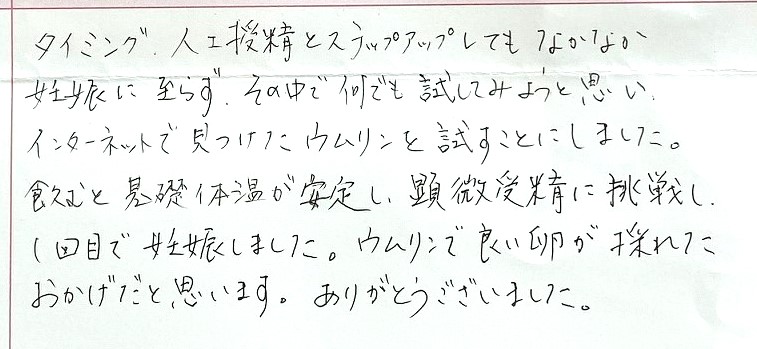 タイミング、人工授精とステップアップしてもなかなか
妊娠に至らず、その中で何でも試してみようと思い、
インターネットで見つけたウムリンを試すことにしました。
飲むと基礎体温が安定し、顕微受精に挑戦し、
1回目で妊娠しました。ウムリンで良い卵が採れた
おかげだと思います。ありがとうございました。